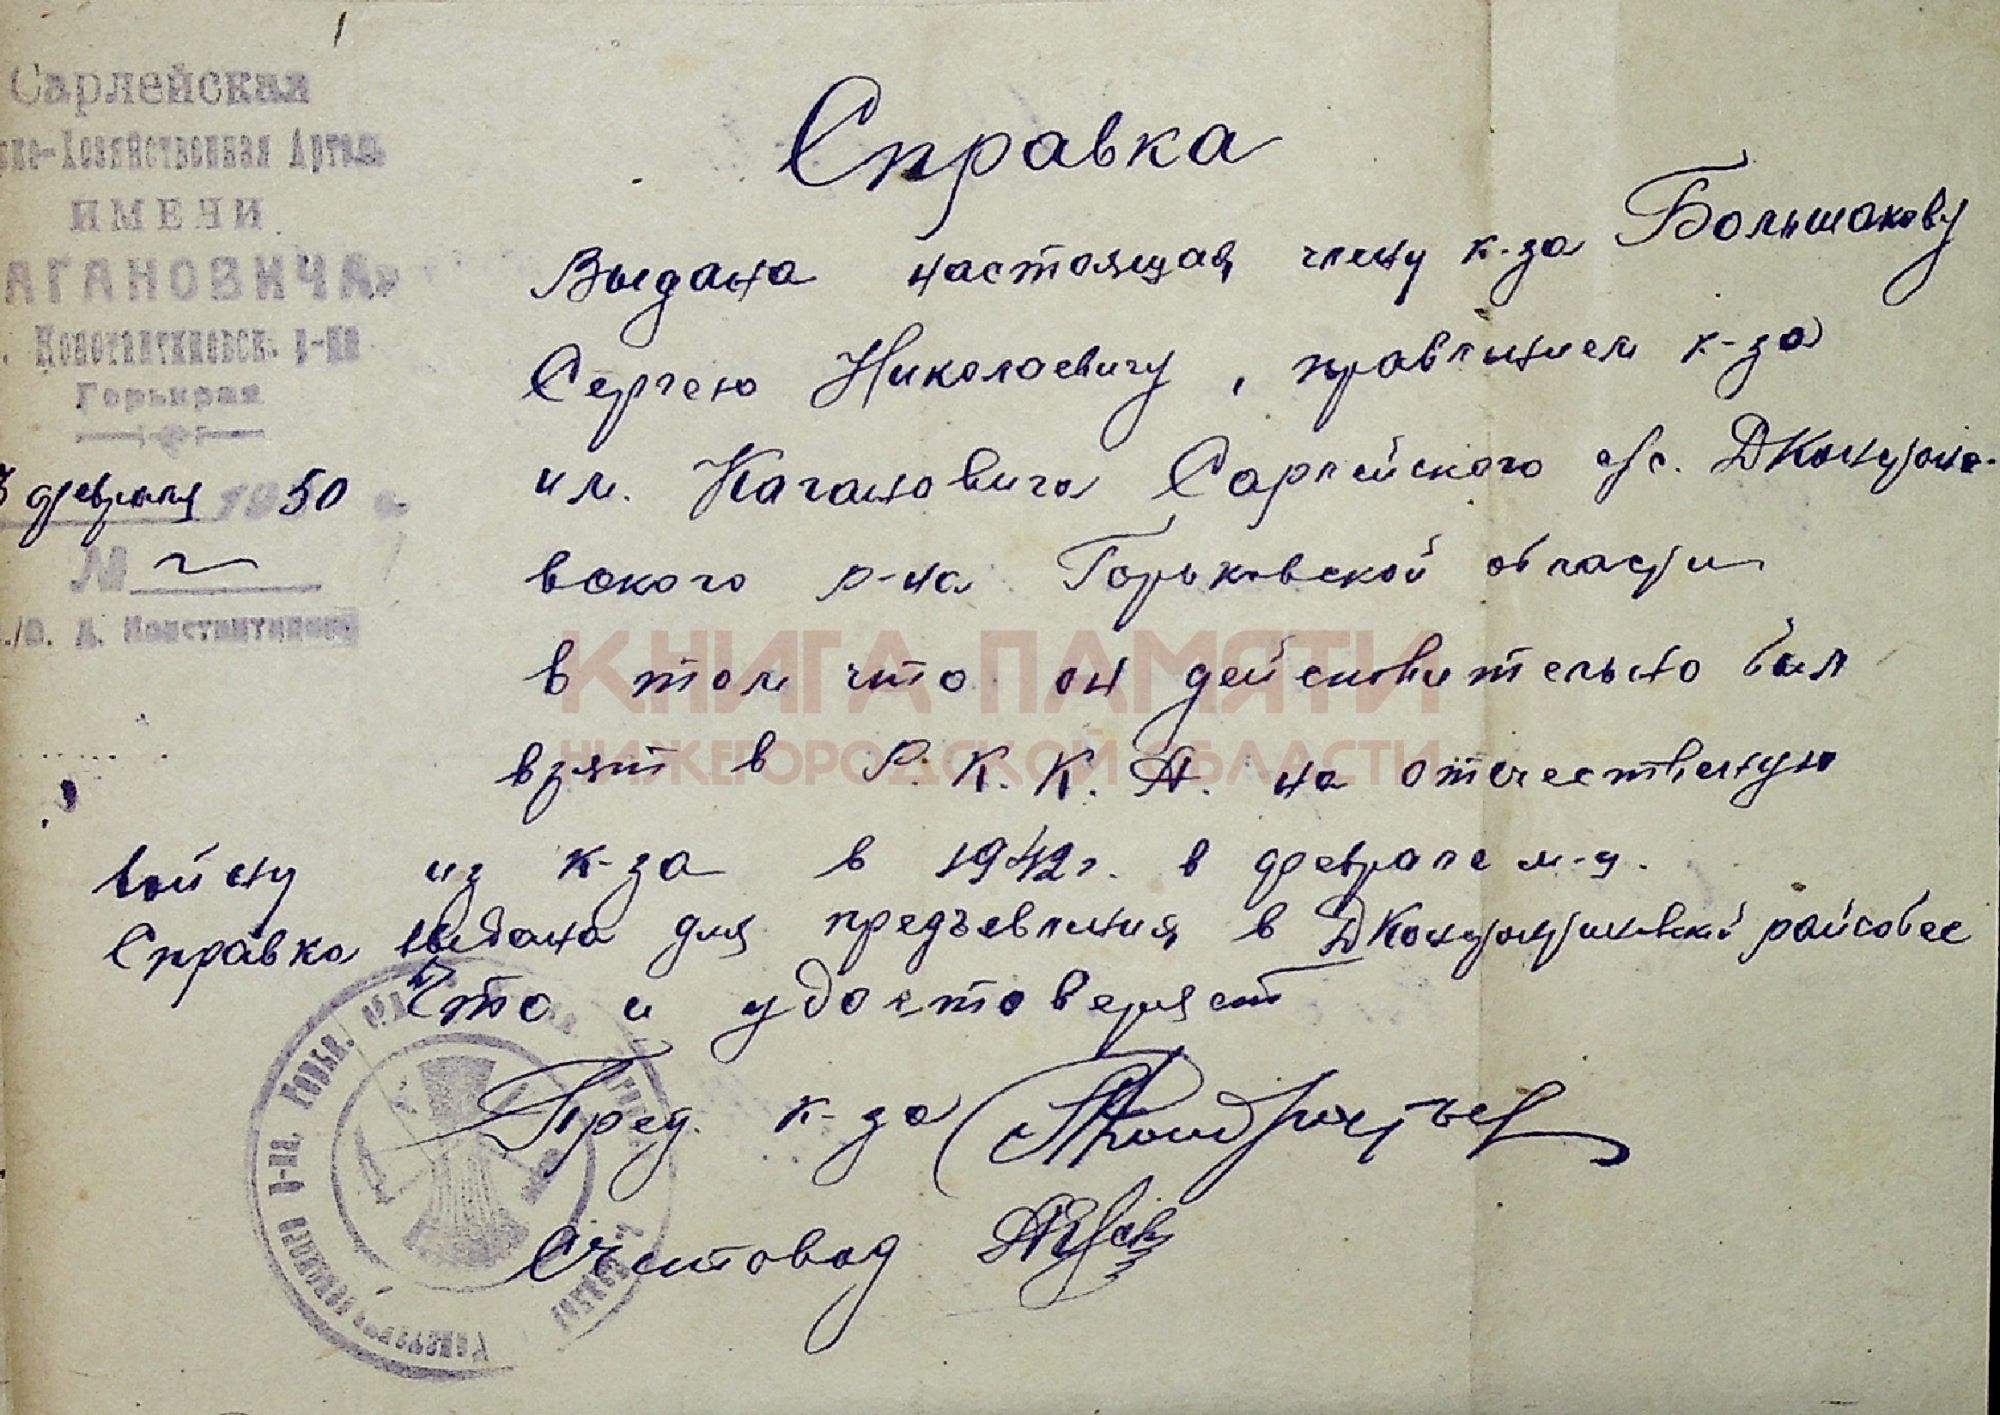 Сарлейская
Хозяйственная Артель
ИМЕНИ
АГАНОВИЧА
Константиновск. р-на
Горькрая
февраля 1950 г.
№
Д. Константиново
Справка
Выдана настоящая члену к-за Большакову
Сергею Николаевичу, правлением к-за
им. Кагановича Сарлейского с/с. ДКонстантино-
вского р-на Горьковской области
в том что он действительно был
взят в Р.К.К.А. на отечественую
войну из к-за в 1942г. в феврале м-це.
Справка выдана для предъевления в ДКонстантиновский райсобес
Что и удостоверяет
Пред. к-за
Счетовод
КНИГА ПАМЯТИ
НИЖЕГОРОДСКОЙ ОБЛАСТИ